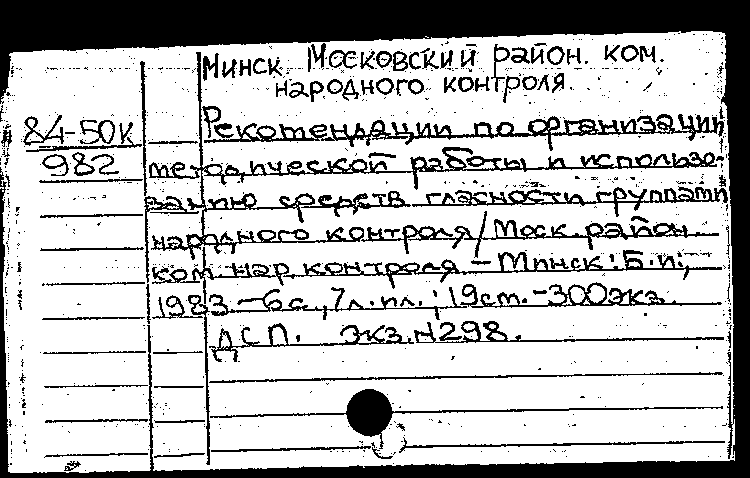 Минск. Московский район. ком.
народного контроля.
84-50к
982
Рекомендации по организации
методической работы и использо-
ванию средств гласности группами
народного контроля/Моск. район.
ком. нар. контроля. - Минск: Б.и.,
1983. - 6с., 7л.ил.; 19см. - 300экз.
ДСП. Экз. N298.